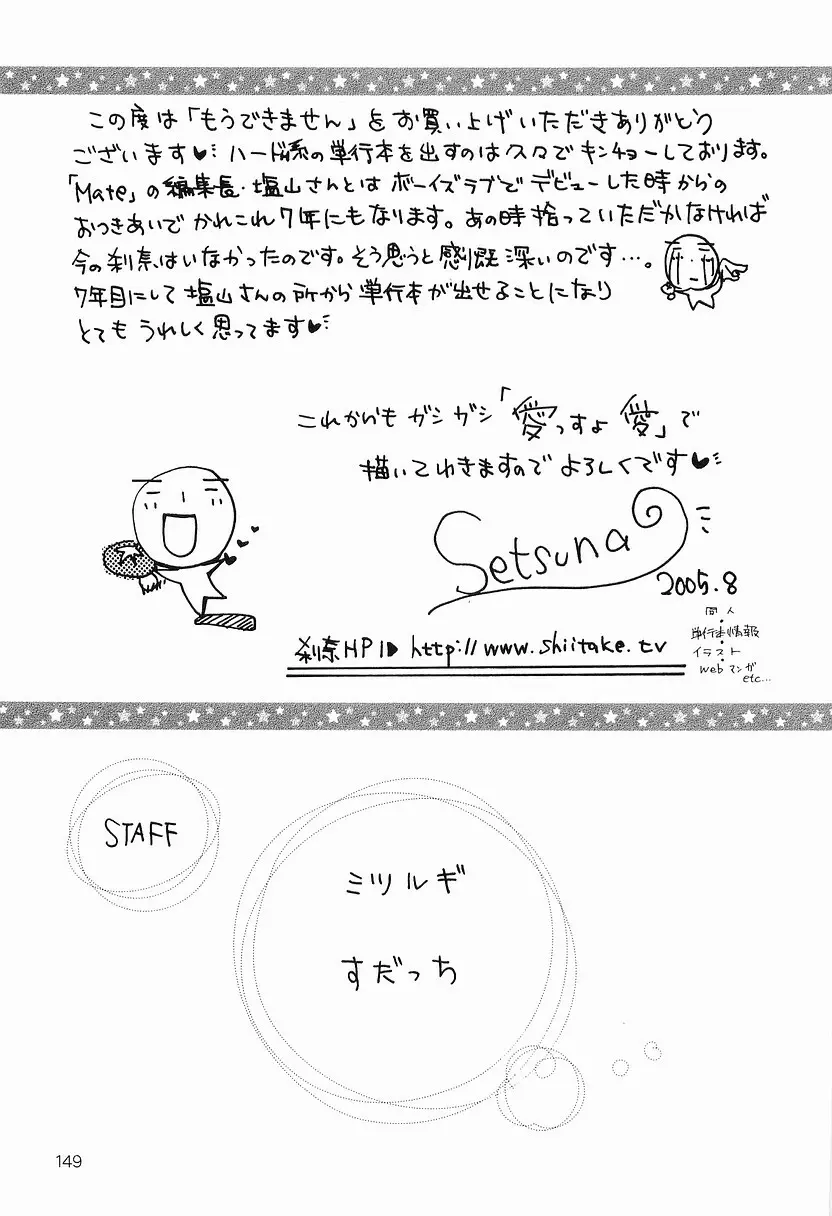 この度は「もうできません」をお買い上げいただきありがとう
ございます♥ ハード系の単行本を出すのは久々でキンチョーしております。
「Mate」の編集長・塩山さんとは ボーイズラブで デビューした時からの
おつきあいで かれこれ7年にもなります。あの時拾っていただかなければ
今の刹奈はいなかったのです。そう思うと感慨深いのです…。
7年目にして塩山さんの所から単行本が出せることになり
とても うれしく思ってます♥
これからも ガシ ガシ「愛っすよ 愛」で
描いてゆきますので よろしくです♥
Setsuna
2005.8
同人
・
単行本情報
・
イラスト
・
Web マンガ
etc...
刹奈HP http://www.shiitake.tv
STAFF
ミツルギ
すだっち
149